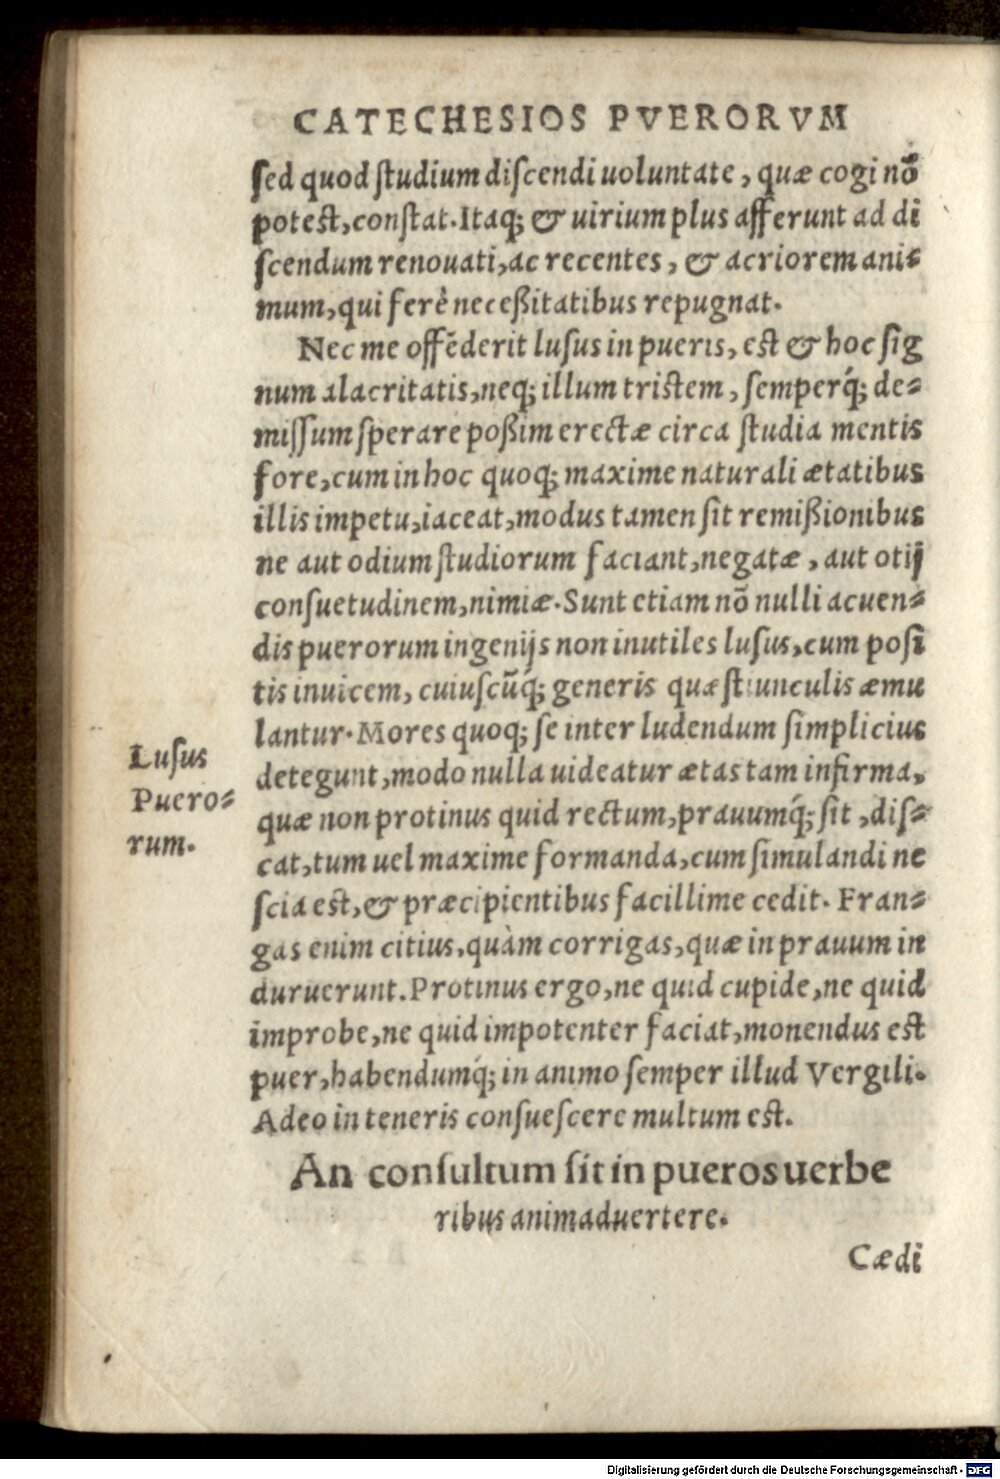 CATECHESIOS PVERORVM
ſed quod ſtudium diſcendi uoluntate, quæ cogi nõ
poteſt, conſtat. Itaq; & uirium plus afferunt ad di
ſcendum renouati, ac recentes, & acriorem ani-
mum, qui ferè neceßitatibus repugnat.
Nec me offẽderit luſus in pueris, eſt & hoc ſig
num alacritatis, neq; illum triſtem, ſemperq́; de-
miſſum ſperare poßim erectæ circa ſtudia mentis
fore, cum in hoc quoq; maxime naturali ætatibus
illis impetu, iaceat, modus tamen ſit remißionibus
ne aut odium ſtudiorum faciant, negatæ, aut otij
conſuetudinem, nimiæ. Sunt etiam nõ nulli acuen-
dis puerorum ingenijs non inutiles luſus, cum poſi
tis inuicem, cuiuſcũq́; generis quæſtiunculis æmu
lantur. Mores quoq; ſe inter ludendum ſimplicius
detegunt, modo nulla uideatur ætas tam infirma,
quæ non protinus quid rectum, prauumq́; ſit, diſ-
cat, tum uel maxime formanda, cum ſimulandi ne
ſcia eſt, & præcipientibus facillime cedit. Fran-
gas enim citius, quàm corrigas, quæ in prauum in
duruerunt. Protinus ergo, ne quid cupide, ne quid
improbe, ne quid impotenter faciat, monendus eſt
puer, habendumq́; in animo ſemper illud Vergili.
Adeo in teneris conſueſcere multum eſt.
Luſus
Puero-
rum.
An conſultum ſit in pueros uerbe
ribus animaduertere.
Cædi
Digitalisierung gefördert durch die Deutsche Forschungsgemeinschaft - DFG